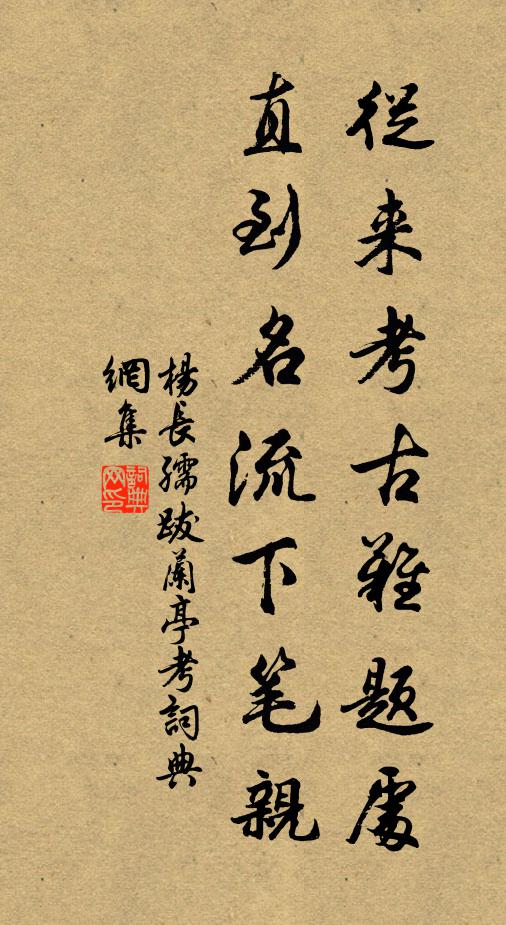 從来考古難題處
直到名流下笔親
楊長孺跋蘭亭考詞典
網集
詞典
网印